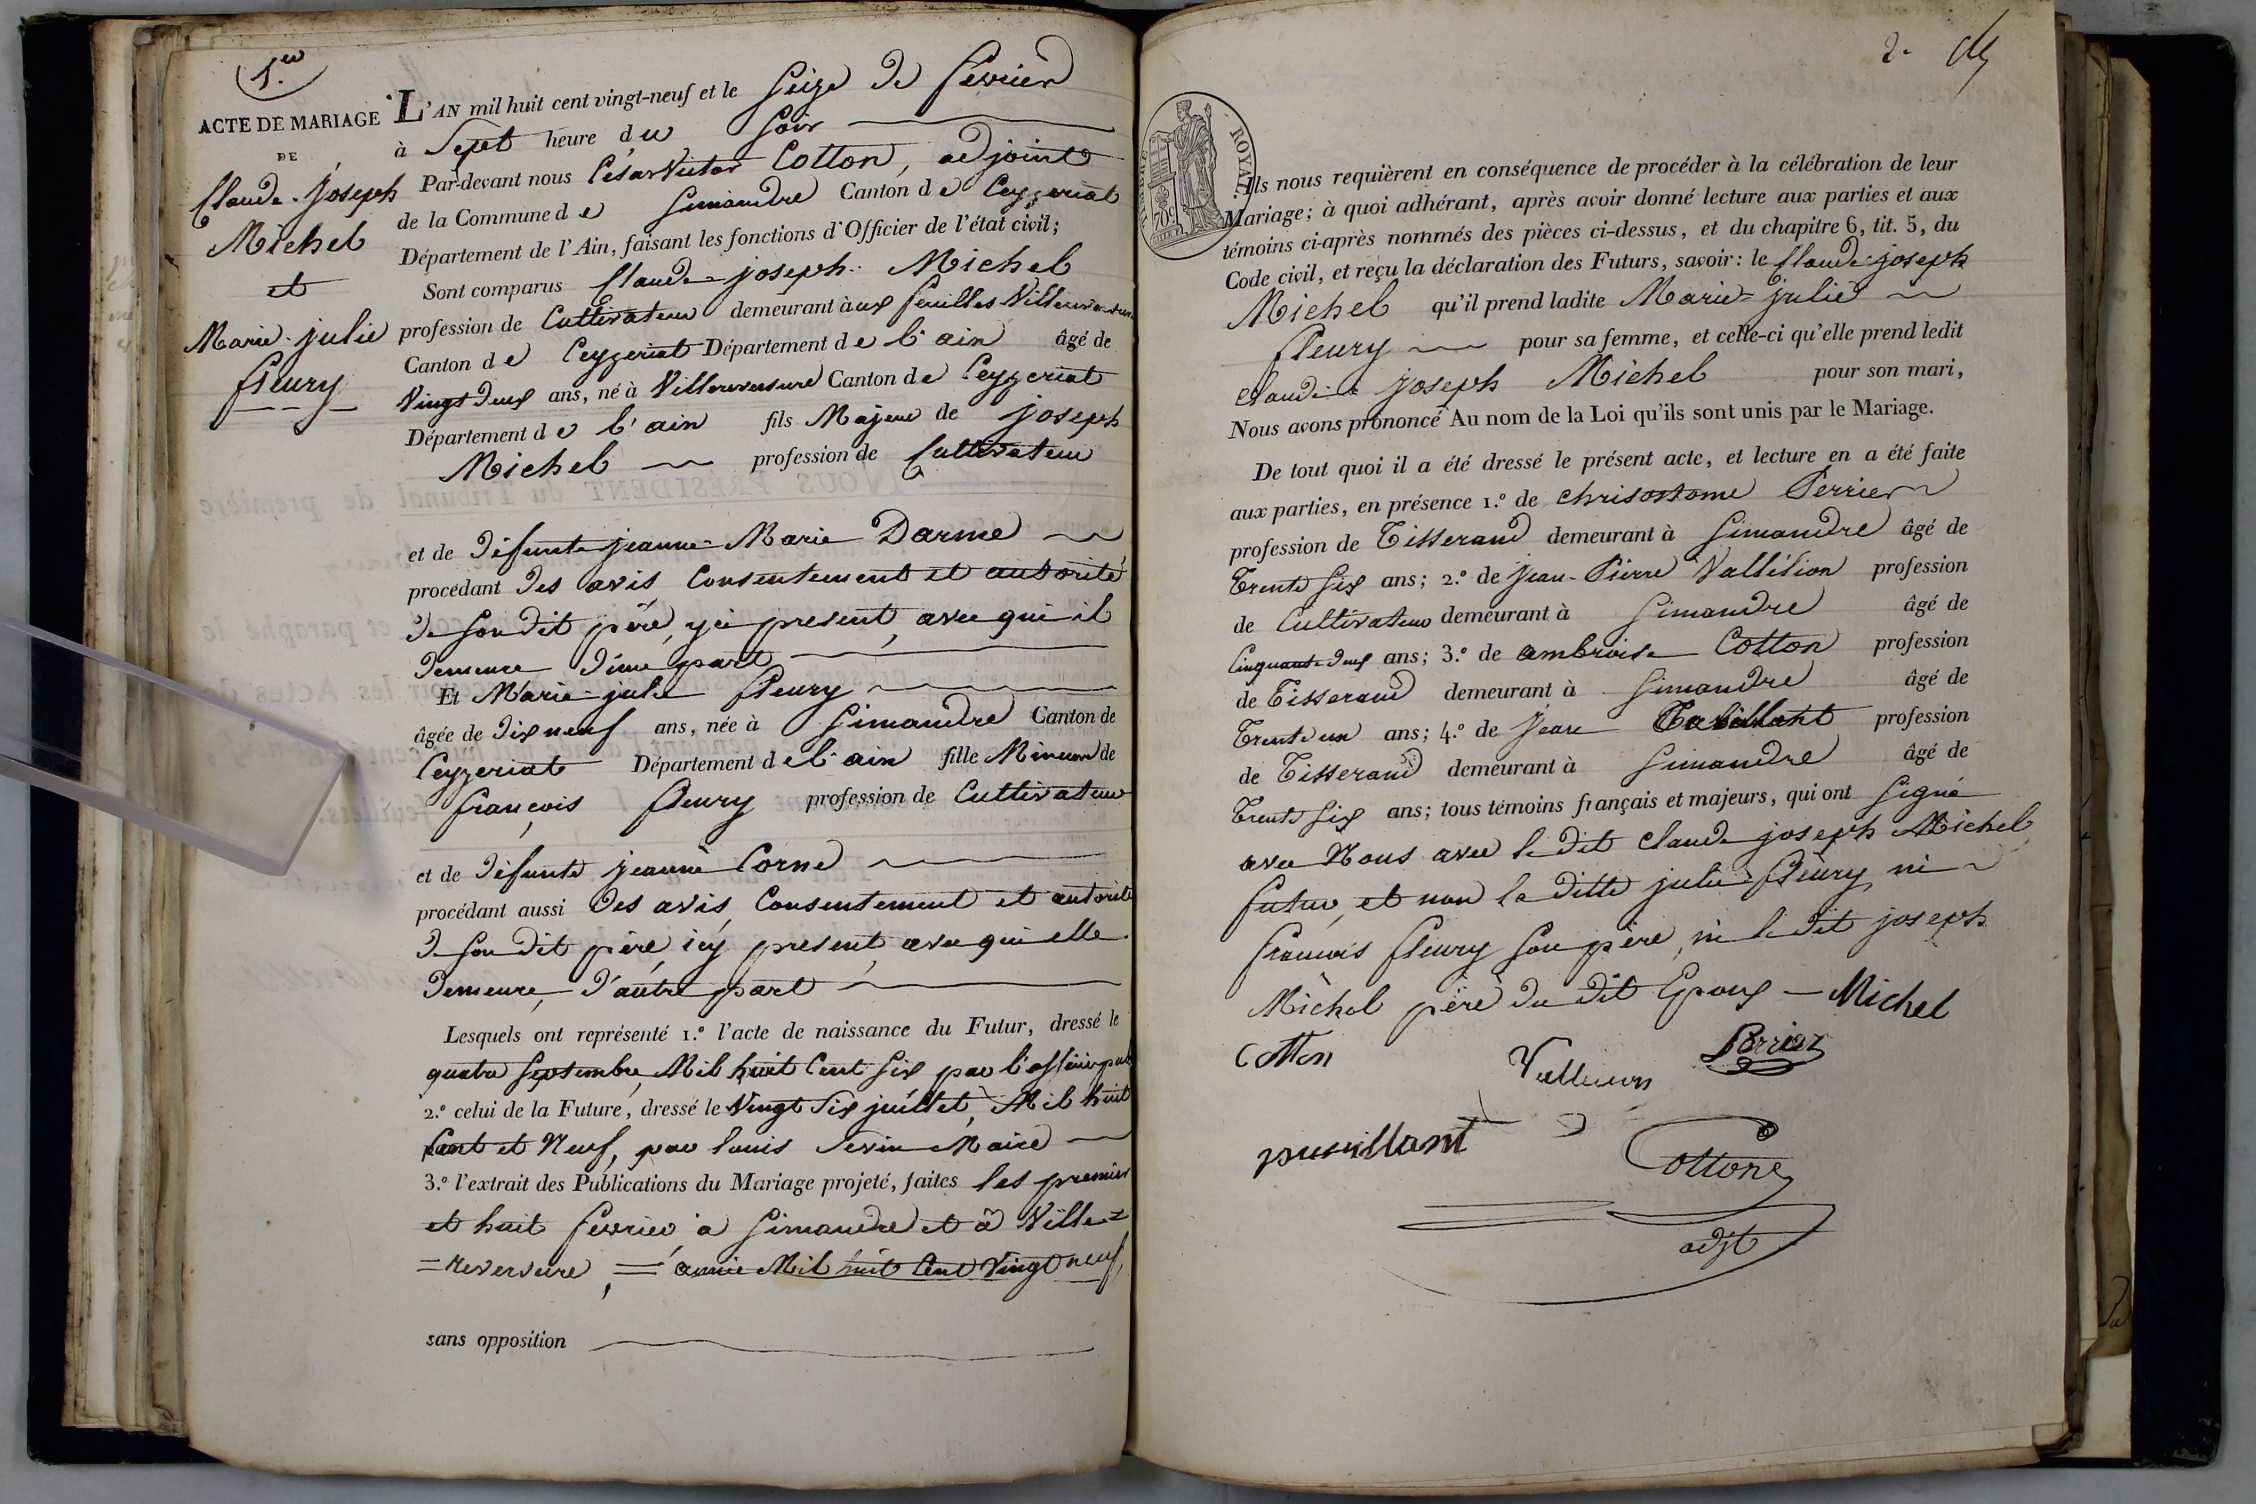 1.er
ACTE DE MARIAGE
DE
Claude-joseph
Michel
et
Marie-julie
fleury
L'AN mil huit cent vingt-neuf et le Seize de fevrier
à Sept heure du Soir
Par-devant nous César Victor Cotton, adjoint
de la Commune de Simandre Canton de Ceyzeriat
Département de l'Ain, faisant les fonctions d'Officier de l'état civil;
Sont comparus Claude-joseph Michel
profession de Cultivateur demeurant aux feuilles Villereversure
Canton de Ceyzeriat Département de l'ain âgé de
Vingt deux ans, né à Villereversure Canton de Ceyzeriat
Département de l'ain fils Majeur de joseph
Michel profession de Cultivateur
et de défunte jeanne-Marie Darme
procédant des avis, Consentement et autorité
de son dit père, yci present, avec qui il
demeure d'une part
Et Marie-julie fleury
âgée de dix neuf ans, née à Simandre Canton de
Ceyzeriat Département de l'ain fille Mineure de
françois fleury profession de Cultivateur
et de défunte jeanne Corne
procédant aussi des avis, Consentement et autorité
de son dit père, icy present, avec qui elle
demeure, d'autre part
Lesquels ont représenté 1.º l'acte de naissance du Futur, dressé le
quatre Septembre, Mil huit Cent Six par l'officier
2.º celui de la Future, dressé le Vingt Six juillet, Mil huit
Cent et Neuf, par louis Sevin Maire
3.º l'extrait des Publications du Mariage projeté, faites les premier
et huit fevrier à Simandre et à Ville=
=reversure, = année Mil huit Cent Vingt neuf,
sans opposition
2.
TIMBRE ROYAL
Ils nous requièrent en conséquence de procéder à la célébration de leur
Mariage; à quoi adhérant, après avoir donné lecture aux parties et aux
témoins ci-après nommés des pièces ci-dessus, et du chapitre 6, tit. 5, du
Code civil, et reçu la déclaration des Futurs, savoir: le Claude joseph
Michel qu'il prend ladite Marie=julie
fleury pour sa femme, et celle-ci qu'elle prend ledit
Claude joseph Michel pour son mari,
Nous avons prononcé Au nom de la Loi qu'ils sont unis par le Mariage.
De tout quoi il a été dressé le présent acte, et lecture en a été faite
aux parties, en présence 1.º de chrisostome Perrier
profession de Tisserand demeurant à Simandre âgé de
Trente Six ans; 2.º de jean-Pierre Vallélion profession
de Cultivateur demeurant à Simandre âgé de
Cinquante deux ans; 3.º de ambroise Cotton profession
de Tisserand demeurant à Simandre âgé de
Trente un ans; 4.º de jean profession
de Tisserand demeurant à Simandre âgé de
Trente Six ans; tous témoins français et majeurs, qui ont Signé
avec Nous avec le dit claude joseph Michel
futur, et non la ditte julie fleury, ni
francois fleury son père, ni le dit joseph
Michel père du dit Epoux — Michel
cotton
Perrier
Cottone
adjt